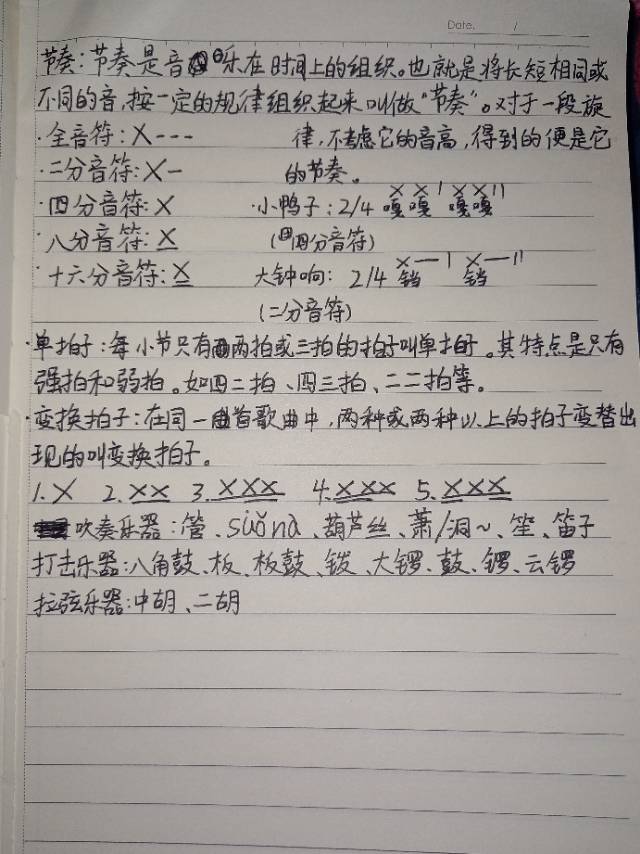 Date. /
节奏:节奏是音乐在时间上的组织。也就是将长短相同或
不同的音,按一定的规律组织起来叫做“节奏”。对于一段旋
·全音符:X--- 律,不考虑它的音高,得到的便是它
·二分音符:X- 的节奏。
·四分音符:X ·小鸭子:2/4 嘎嘎 嘎嘎 X X | X X ||
·八分音符:X (四分音符)
·十六分音符:X 大钟响: 2/4 铛 铛 X — | X — ||
(二分音符)
·单拍子:每小节只有两拍或三拍的拍子叫单拍子。其特点是只有
强拍和弱拍。如四二拍、四三拍、二二拍等。
·变换拍子:在同一首歌曲中,两种或两种以上的拍子变替出
现的叫变换拍子。
1.X 2.XX 3.XXX 4.XXX 5.XXX
吹奏乐器:管、suǒnà、葫芦丝、萧/洞~、笙、笛子
打击乐器:八角鼓、板、板鼓、钹、大锣、鼓、锣、云锣
拉弦乐器:中胡、二胡